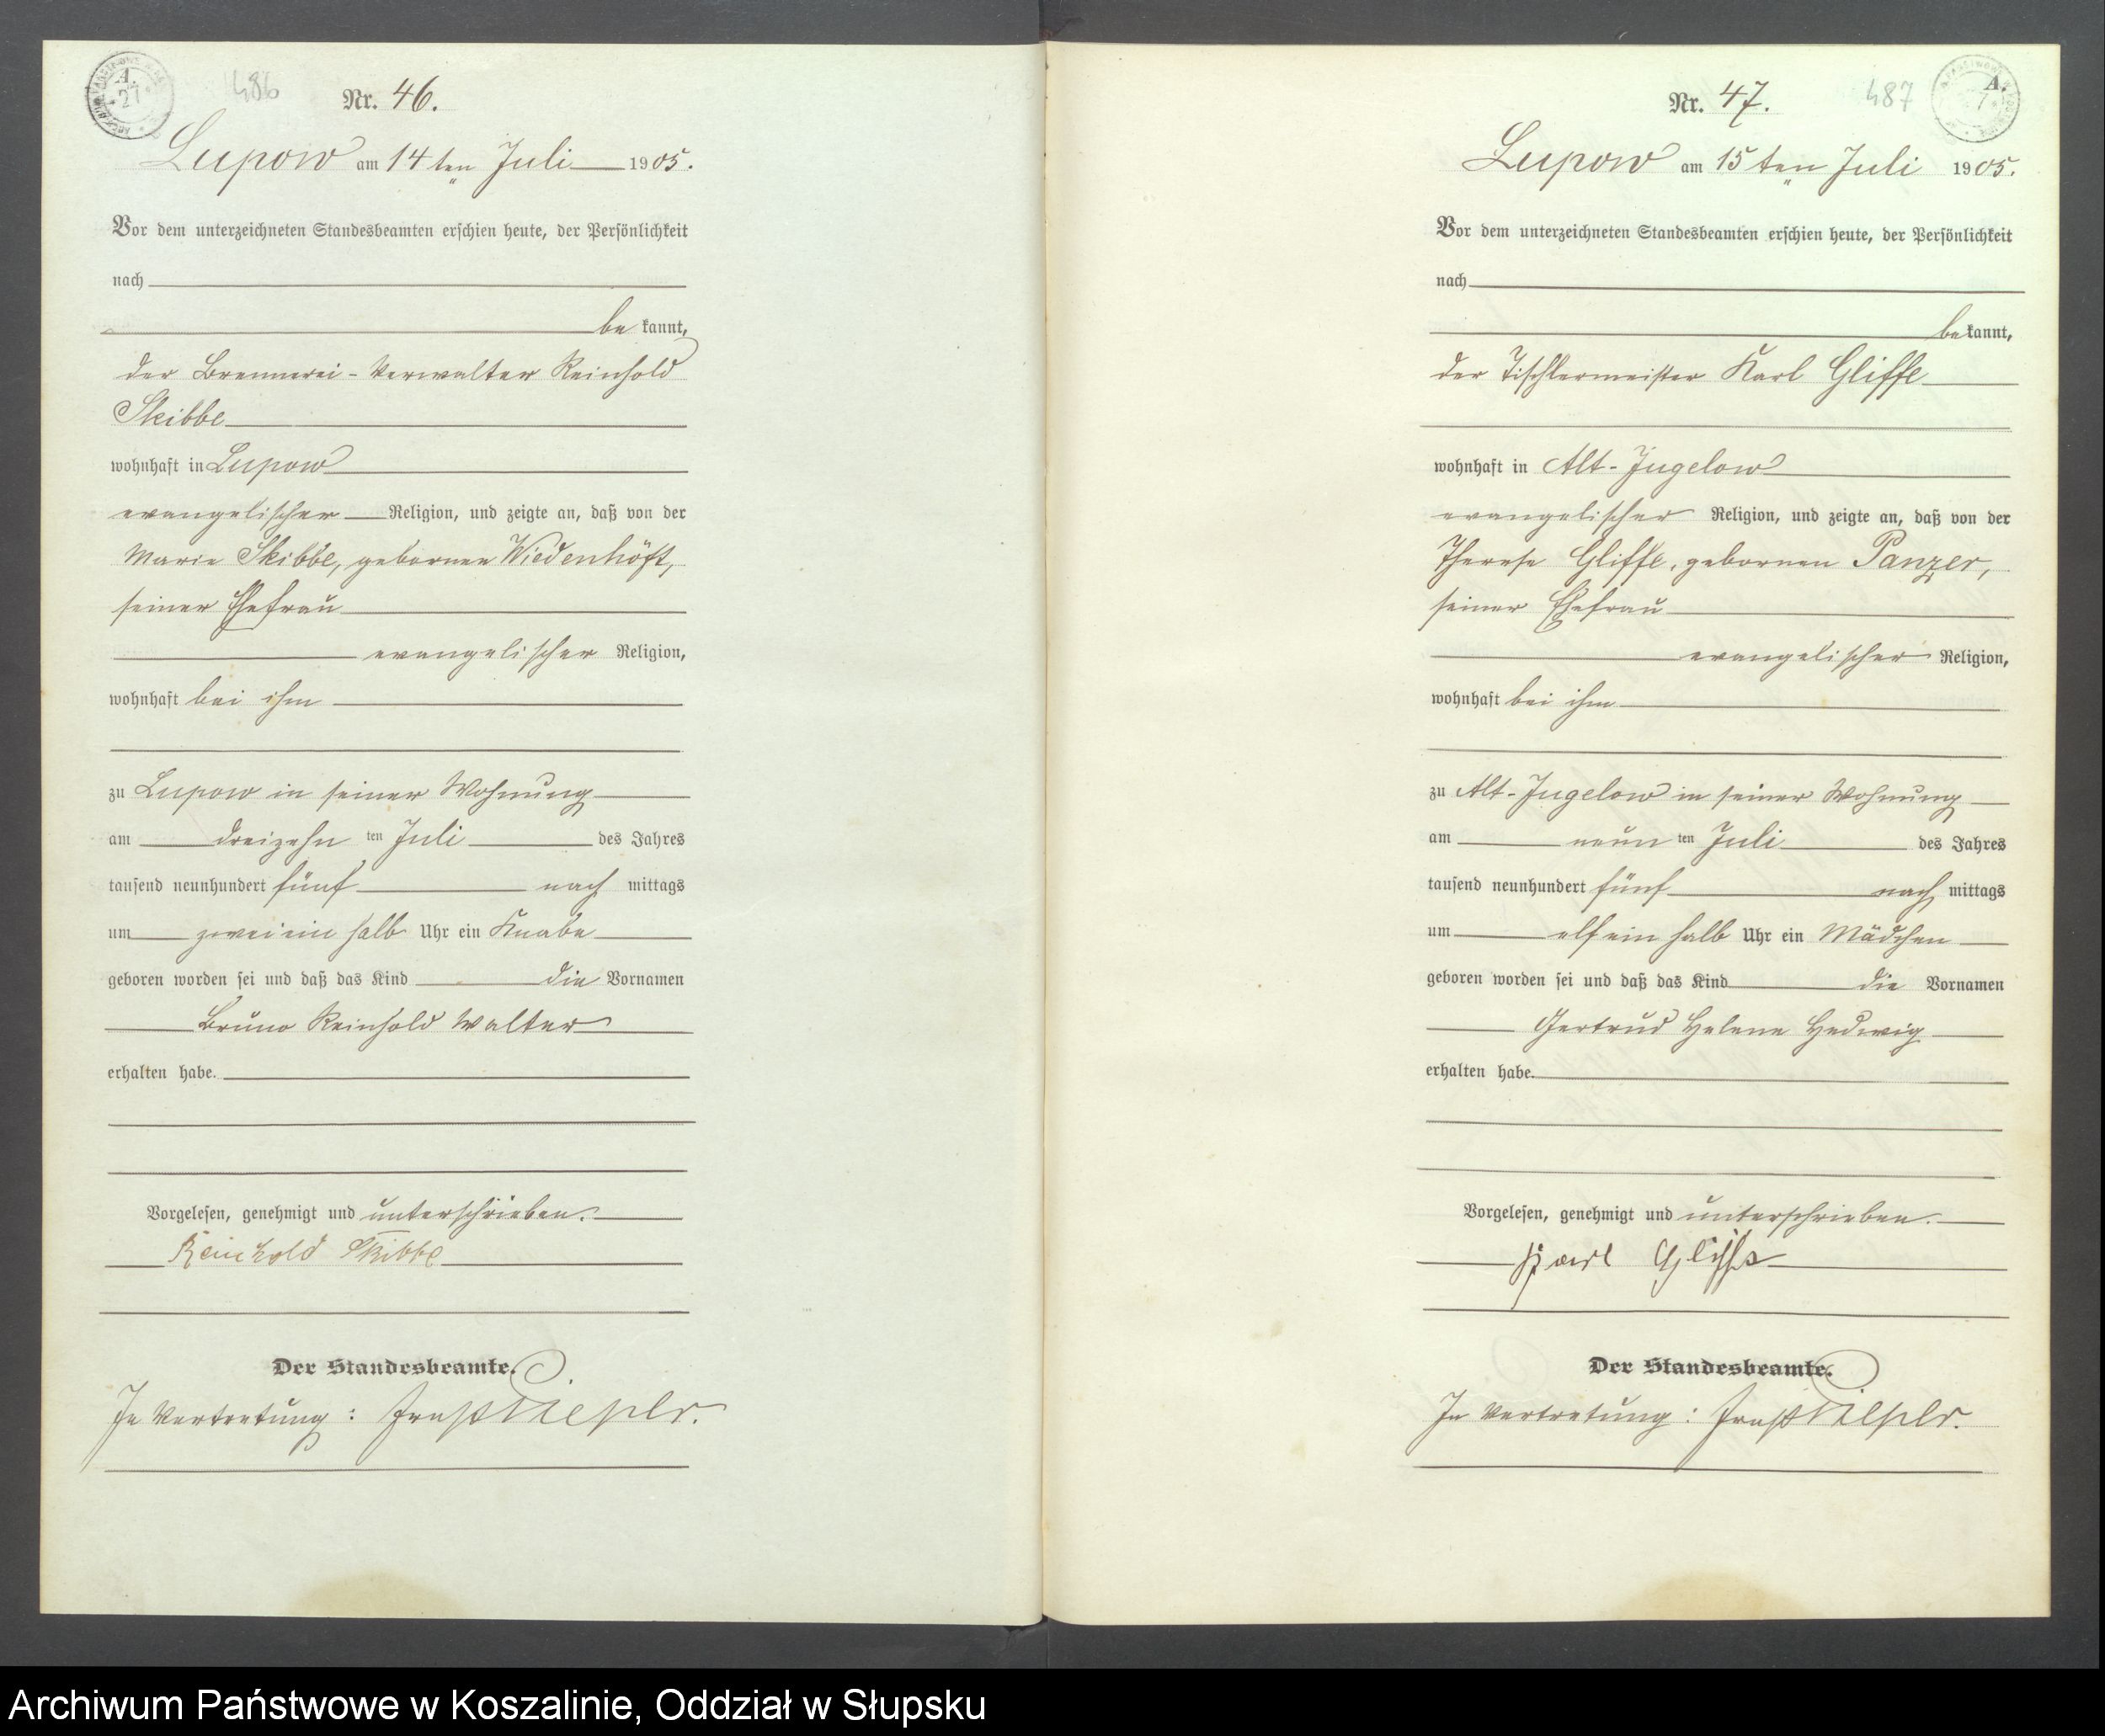 486
Nr. 46.
Lupow am 14ten Juli 1905.
Vor dem unterzeichneten Standesbeamten erschien heute, der Persönlichkeit
nach
be kannt,
der Brennerei-Verwalter Reinhold
Skibbe
wohnhaft in Lupow
evangelischer Religion, und zeigte an, daß von der
Marie Skibbe, gebornen Wiedenhöft,
seiner Ehefrau
evangelischer Religion,
wohnhaft bei ihm
zu Lupow in seiner Wohnung
am dreizehn ten Juli des Jahres
tausend neunhundert fünf nach mittags
um zwei ein halb Uhr ein Knabe
geboren worden sei und daß das Kind die Vornamen
Bruno Reinhold Walter
erhalten habe.
Vorgelesen, genehmigt und unterschrieben.
Reinhold Skibbe
Der Standesbeamte.
In Vertretung:
487
Nr. 47.
Lupow am 15ten Juli 1905.
Vor dem unterzeichneten Standesbeamten erschien heute, der Persönlichkeit
nach
be kannt,
der Tischlermeister Karl Gliffe
wohnhaft in Alt-Jugelow
evangelischer Religion, und zeigte an, daß von der
Therese Gliffe, gebornen Panzer,
seiner Ehefrau
evangelischer Religion,
wohnhaft bei ihm
zu Alt-Jugelow in seiner Wohnung
am neun ten Juli des Jahres
tausend neunhundert fünf nach mittags
um elf ein halb Uhr ein Mädchen
geboren worden sei und daß das Kind die Vornamen
Gertrud Helene Hedwig
erhalten habe.
Vorgelesen, genehmigt und unterschrieben.
Karl Gliffe
Der Standesbeamte.
In Vertretung:
Archiwum Państwowe w Koszalinie, Oddział w Słupsku